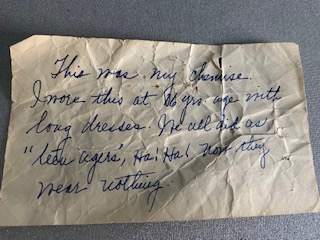 This was my chemise.
I wore this at 16 yrs. age with
long dresses. We all did as
"teen agers", Ha! Ha! now they
wear nothing.